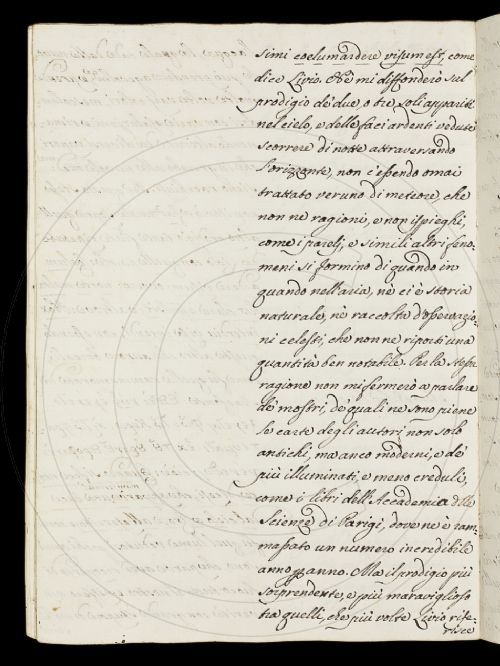 simi coelum ardere visum est, come
dice Livio. Nè mi diffonderò sul
prodigio de' due, o tre soli appariti
nel cielo, e delle faci ardenti vedute
scorrere di notte attraversando
l'orizzonte, non c'essendo omai
trattato veruno di meteore, che
non ne ragioni, e non ispieghi,
come i parelj, e simili altri feno-
meni si formino di quando in
quando nell'aria, nè ci è storia
naturale, nè raccolta d'osservazio-
ni celesti, che non ne riporti una
quantità ben notabile. Per la stessa
ragione non mi fermerò a parlare
de' mostri, de' quali ne sono piene
le carte degli autori non solo
antichi, ma anco moderni, e de'
più illuminati, e meno creduli,
come i libri dell'Accademia delle
Scienze di Parigi, dove ne è ram-
massato un numero incredibile
anno per anno. Ma il prodigio più
sorprendente, e più maraviglioso
tra quelli, che più volte Livio rife-
risce